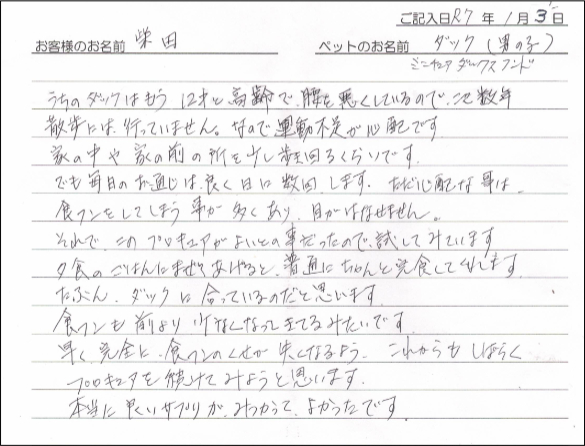 ご記入日 R7 年 1 月 3 日
お客様のお名前 柴田 ペットのお名前 ダック(男の子)
ミニチュアダックスフンド
うちのダックはもう12才と高齢で、腰を悪くしているので、ここ数年
散歩には、行っていません。なので運動不足が心配です
家の中や家の前の所を少し歩き回るくらいです。
でも毎日のお通じは、良く日に数回します。ただ心配な事は、
食フンをしてしまう事が多くあり、目がはなせません。
それで、このプロキュアがよいとの事だったので、試してみています
夕食のごはんにまぜてあげると、普通にちゃんと完食してくれます。
たぶん、ダックに合っているのだと思います。
食フンも前より少なくなって来てるみたいです。
早く完全に、食フンのくせが失くなるよう、これからもしばらく
プロキュアを続けてみようと思います。
本当に良いサプリが、みつかって、よかったです。